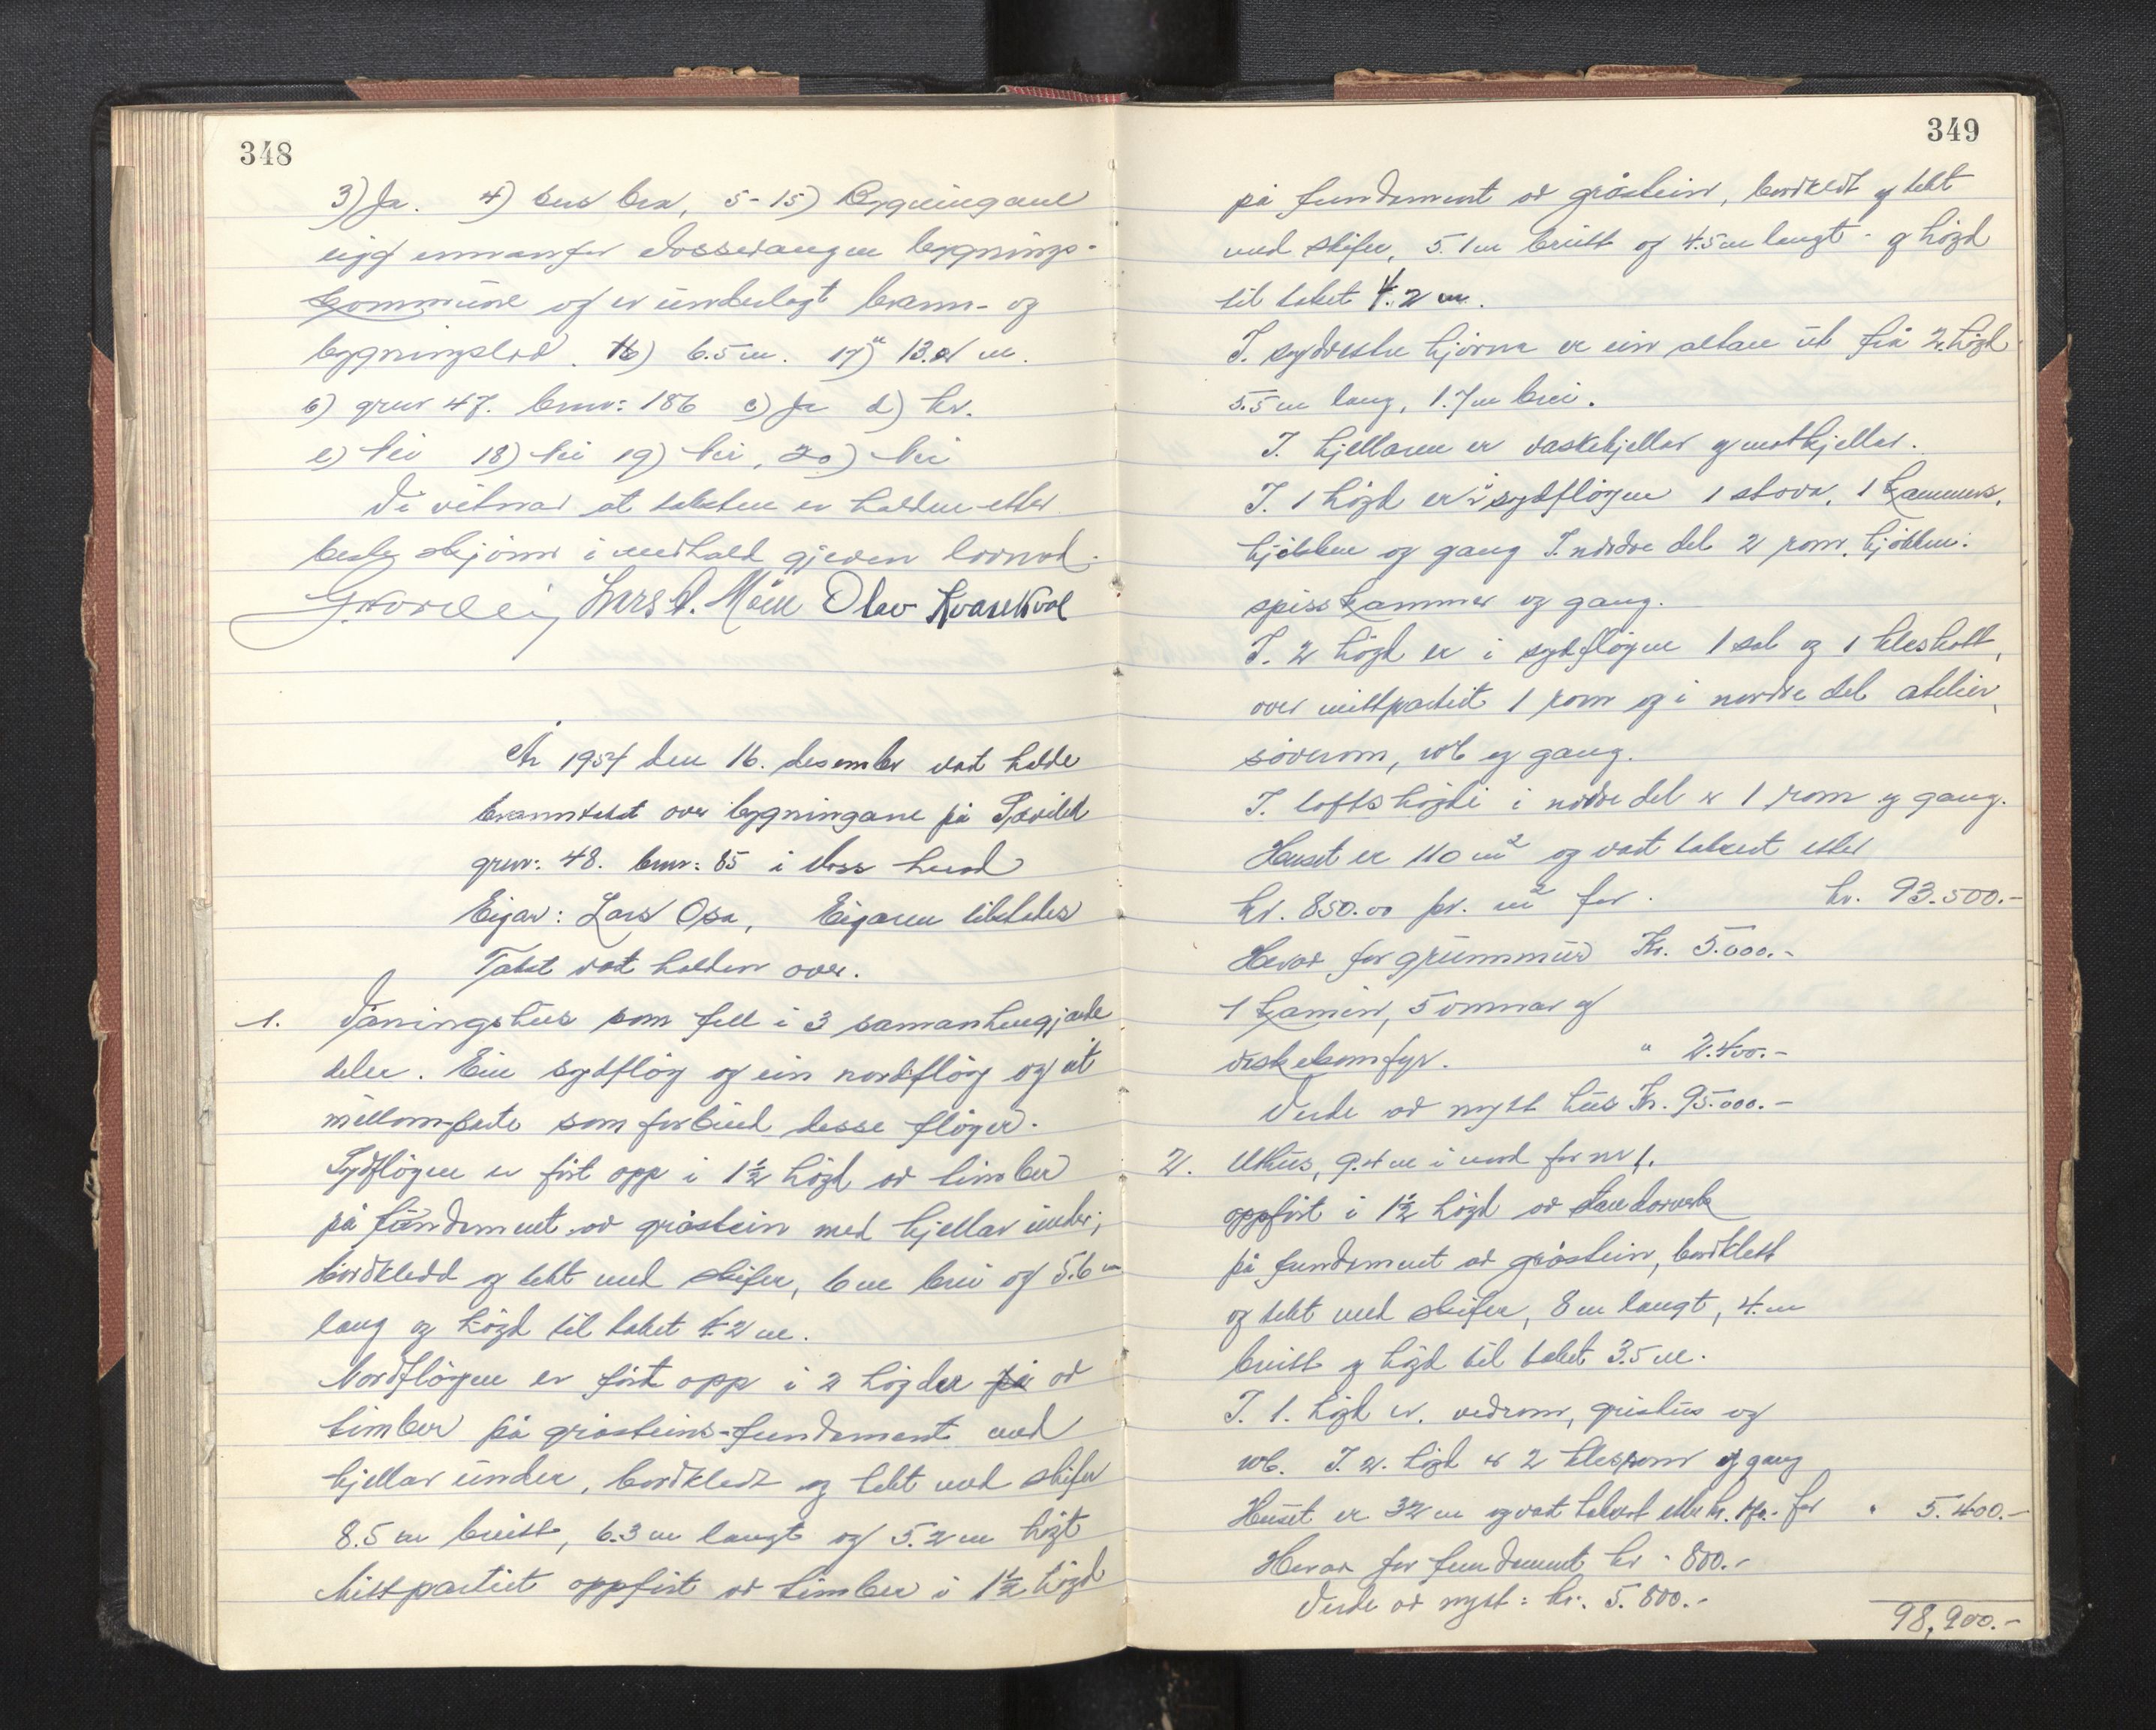 348
3) Ja. 4) bra, 5-15) Bygningane
ligg innanfor Vossevangen bygnings-
kommune og er underlagt brann- og
bygningslov. 16) 6.5 m. 17) 13. m.
b) gnr 47. bnr: 186 c) Ja d) kr.
e) Nei 18) Nei 19) Nei, 20) Nei
Vi vitnar at taksten er halden etter
beste skjönn i medhald gjeven lovnad.
Lars Möen Olav Kvarekval
År 1954 den 16. desember vart halde
branntakst over bygningane på Tjovild
gnr: 48. bnr: 85 i Voss herad
Eigar: Lars Osa, Eigaren tilstades
Takst vart halden over.
1. Våningshus som fell i 3 samanhengjande
deler. Ein sydflöy og ein nordflöy og eit
millomparti som forbind desse flöyer.
Sydflöyen er fört opp i 1½ högd av timber
på fundament av gråstein med kjellar under,
bordkledd og tekt med skifer, 6 m brei og 5.6 m
lang og högd til taket 4.2 m.
Nordflöyen er fört opp i 2 högder på av
timber på gråsteins-fundament med
kjellar under, bordkledt og tekt med skifer
8.5 m breitt, 6.3 m langt og 5.2 m högt
Mittpartiet oppfört av timber i 1½ högd
349
på fundament av gråstein, bordkledt og tekt
med skifer, 5.1 m breitt og 4.5 m langt - og högd
til taket 4.2 m.
I. sydvestre hjörna er ein altan ut frå 2. högd
5.5 m lang, 1.7 m brei.
I. kjellaren er vaskekjellar og matkjellar.
I. 1 högd er i sydflöyen 1 stova, 1 kammers,
kjökken og gang I. nordre del 2 rom, kjökken,
spisskammer og gang.
I. 2 högd er i sydflöyen 1 sal og 1 kleskott,
over mittpartiet 1 rom og i nordre del atelier,
söverom, wc og gang.
I. loftshögdi i nordre del er 1 rom og gang.
Huset er 110 m² og vart taksert etter
kr. 850.00 pr. m² for kr. 93.500.-
Herav for grunnmur Kr. 5.000.-
1 kamin, 5 omnar og
vaskekomfyr. " 2.400.-
Verde av nytt hus Kr. 95.000.-
2. Uthus, 9.4 m i nord for nr 1.
oppfört i 1½ högd av standarverk
på fundament av gråstein, bordklett
og tekt med skifer, 8 m langt, 4. m
breitt og högd til taket 3.5 m.
I. 1. högd er. vedrom, grishus og
wc. I. 2. högd er 2 klesrom og gang
Huset er 32 m og vart taksert etter kr. 170.- for " 5.400.-
Herav for fundament kr. 800.-
Verde av nytt: kr. 5.800.-
98,900.-